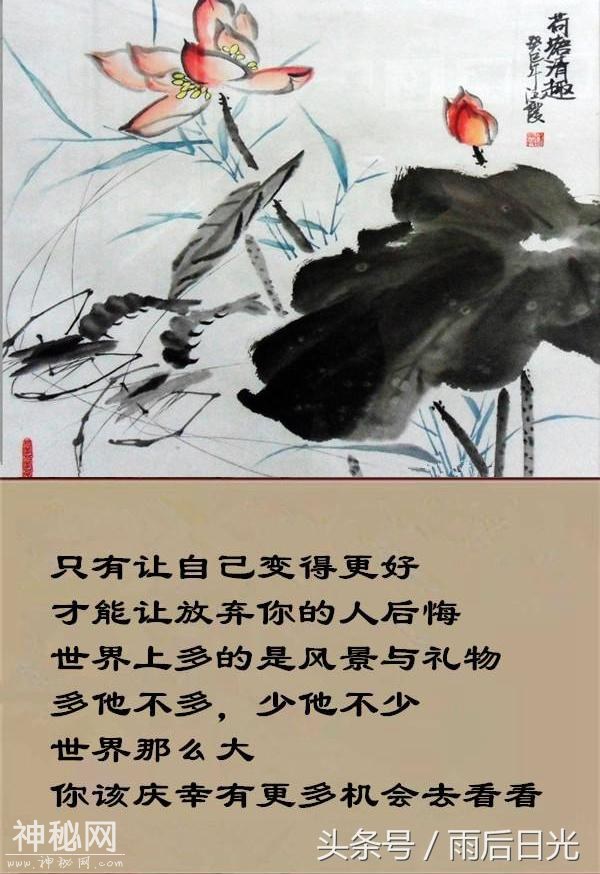 荷塘清趣
癸巳年江霞
只有让自己变得更好
才能让放弃你的人后悔
世界上多的是风景与礼物
多他不多，少他不少
世界那么大
你该庆幸有更多机会去看看
神秘网
www.神秘网.com
头条号 / 雨后日光